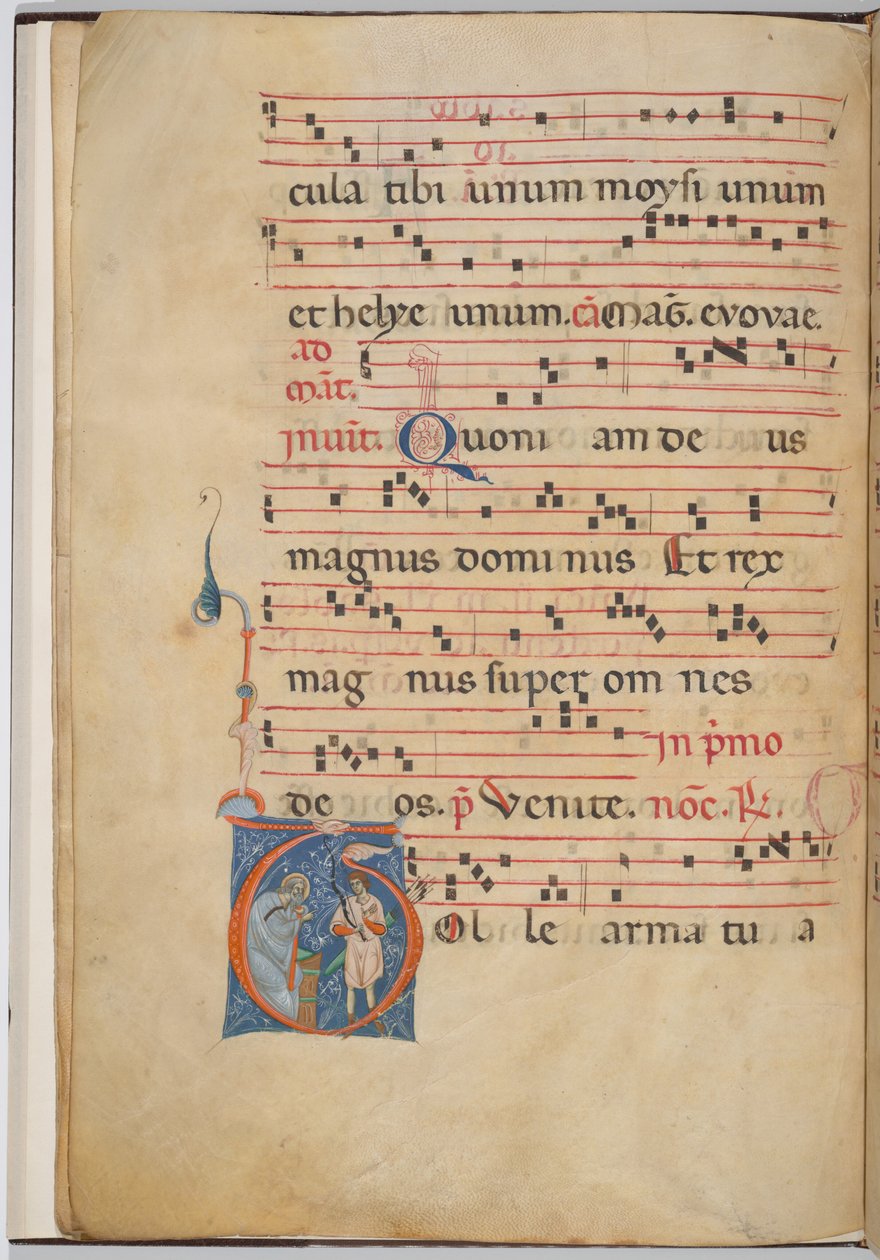 cula tibi unum moysi unum
et helye unum. cā Mag̃. evovae.
ad
Māt.
Inuit̄. Quoni am de us
magnus domi nus Et rex
mag nus super om nes
In p̄mo
de os. p̄ Venite. noc̄. ℟.
Tol le arma tu a